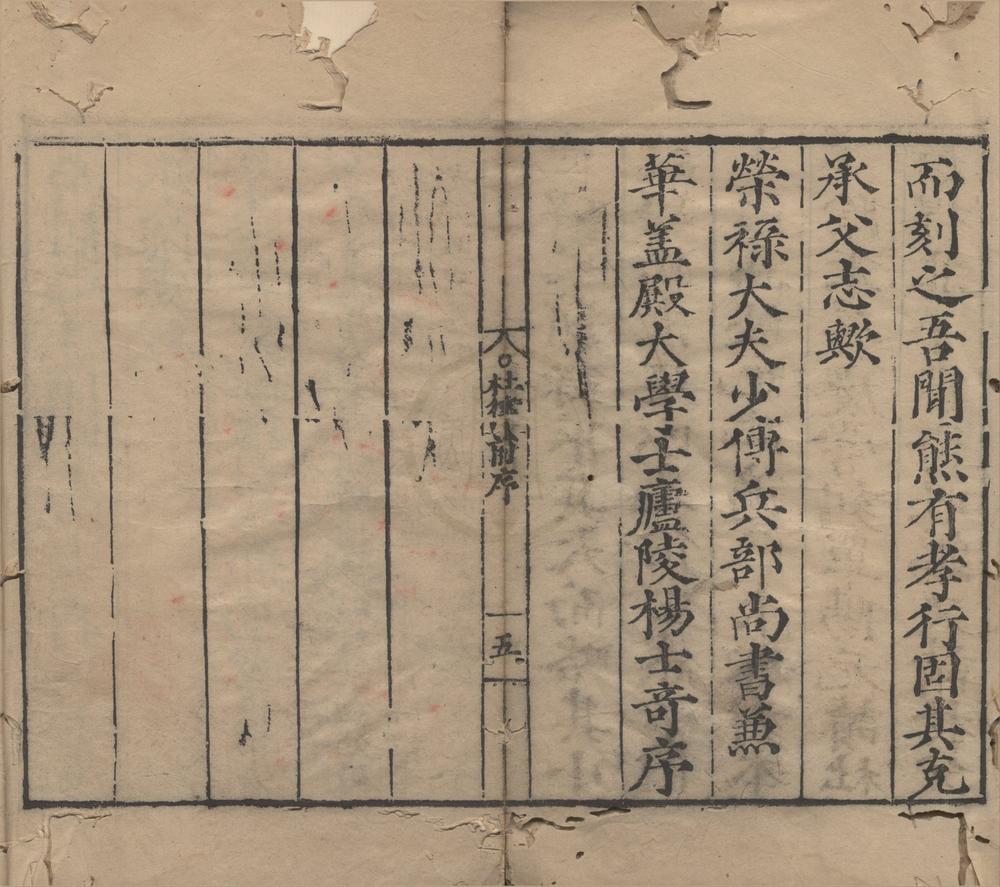 而刻之吾聞熊有孝行固其克
承父志歟
榮祿大夫少傅兵部尚書兼
華蓋殿大學士廬陵楊士奇序
杜律 序
五